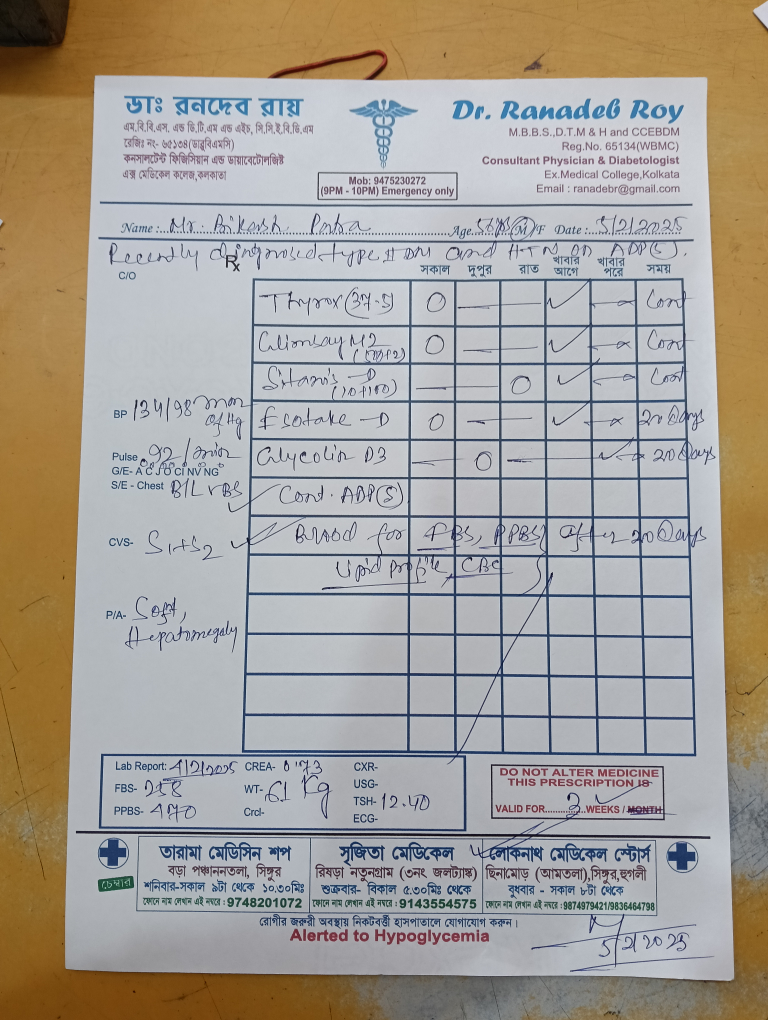 ডাঃ রনদেব রায়
এম.বি.বি.এস, এন্ড ডি.টি.এম এন্ড এইচ, সি.সি.ই.বি.ডি.এম
রেজিঃ নং- ৬৫১৩৪(ডাব্লুবিএমসি)
কনসালটেন্ট ফিজিসিয়ান এন্ড ডায়াবেটোলজিষ্ট
এক্স মেডিকেল কলেজ,কলকাতা
Mob: 9475230272
(9PM - 10PM) Emergency only
Dr. Ranadeb Roy
M.B.B.S.,D.T.M & H and CCEBDM
Reg.No. 65134(WBMC)
Consultant Physician & Diabetologist
Ex.Medical College,Kolkata
Email : ranadebr@gmail.com
Name : Mr. Bikash Patra Age. 56 yrs M/F Date : 5/2/2025
Recently diagnosed type II DM and HTN on ADP(5).
Rx
C/O
সকাল দুপুর রাত খাবার আগে খাবার পরে সময়
Thyrox (37.5) Cont
Glimsay M2 Cont
Sitaris-D (10+100) Cont
BP 134/98 mm of Hg
Esotake-D 20 Days
Pulse 92/min
Glycolin D3 20 Days
G/E- A C J O CI NV NG
S/E - Chest B/L VBS
Cont. ADP(5)
CVS- S1+S2
Blood for FBS, PPBS after 20 Days
Lipid profile, CBC
P/A- Soft,
Hepatomegaly
Lab Report: 4/2/2025 CREA- 0.73 CXR-
FBS- 258 WT- 61 Kg USG-
PPBS- 470 Crcl- TSH- 12.40
ECG-
DO NOT ALTER MEDICINE
THIS PRESCRIPTION IS
VALID FOR 3 WEEKS / MONTH
চেম্বার
তারামা মেডিসিন শপ
বড়া পঞ্চাননতলা, সিঙ্গুর
শনিবার-সকাল ৯টা থেকে ১০.৩০মিঃ
ফোনে নাম লেখান এই নম্বরে : 9748201072
সৃজিতা মেডিকেল
রিষড়া নতুনগ্রাম (৩নং জলট্যাঙ্ক)
শুক্রবার- বিকাল ৫.৩০মিঃ থেকে
ফোনে নাম লেখান এই নম্বরে : 9143554575
লোকনাথ মেডিকেল স্টোর্স
ছিনামোড় (আমতলা),সিঙ্গুর,হুগলী
বুধবার - সকাল ৮টা থেকে
ফোনে নাম লেখান এই নম্বরে :9874979421/9836464798
রোগীর জরুরী অবস্থায় নিকটবর্তী হাসপাতালে যোগাযোগ করুন।
Alerted to Hypoglycemia
5/2/2025